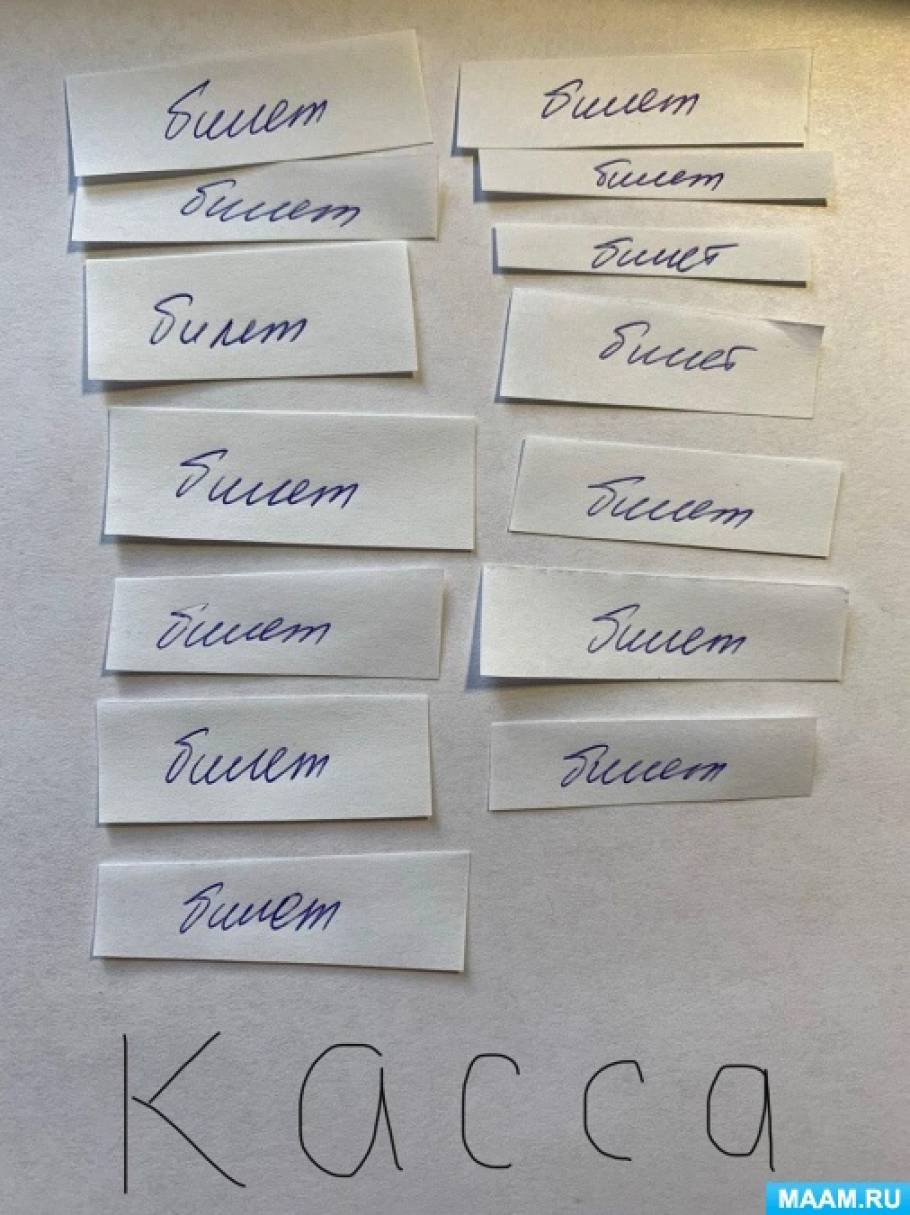 билет
билет
билет
билет
билет
билет
билет
билет
билет
билет
билет
билет
билет
билет
Касса
MAAM.RU